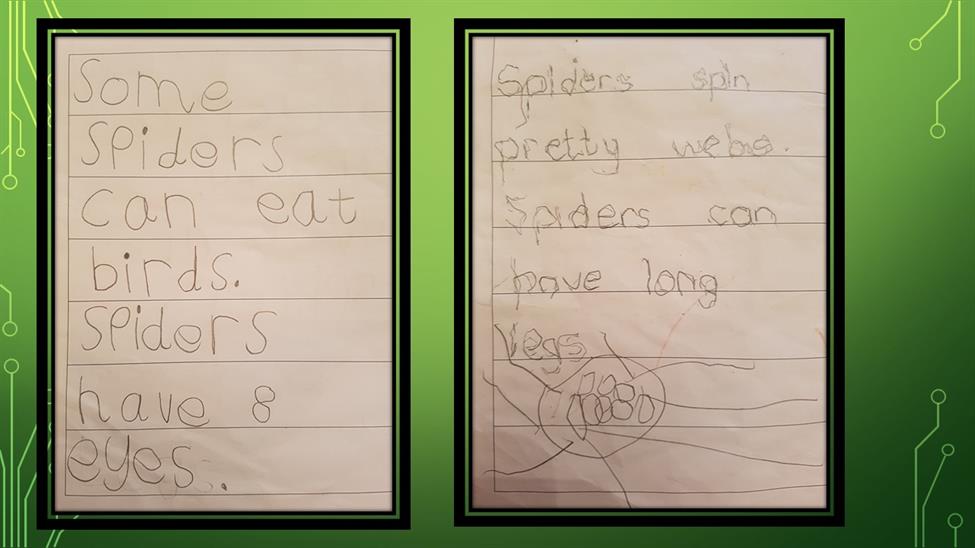 Some
Spiders
can eat
birds.
Spiders
have 8
eyes.
Spiders spin
pretty webs.
Spiders can
have long
legs